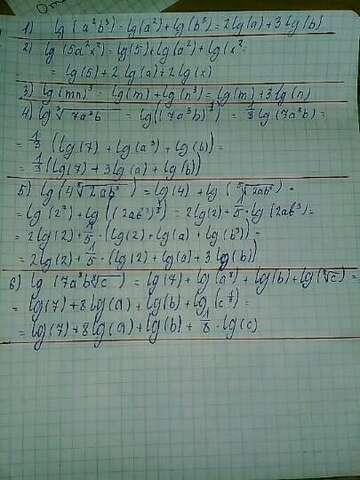 1) lg (a²b³) = lg(a²) + lg(b³) = 2lg(a) + 3lg(b)
2) lg (5a²x²) = lg(5) + lg(a²) + lg(x²
= lg(5) + 2lg(a) + 2lg(x)
3) lg(mn³) = lg(m) + lg(n³) = lg(m) + 3lg(n)
4) lg ∛(7a³b) = lg((7a³b)^⅓) = ⅓ lg(7a³b) =
= ⅓ (lg(7) + lg(a³) + lg(b)) =
= ⅓ (lg(7) + 3lg(a) + lg(b))
5) lg(4 ⁵√(2ab³)) = lg(4) + lg(⁵√(2ab³)) =
= lg(2²) + lg((2ab³)^⅕) = 2lg(2) + ⅕ · lg(2ab³) =
= 2lg(2) + ⅕ · (lg(2) + lg(a) + lg(b³)) =
= 2lg(2) + ⅕ · (lg(2) + lg(a) + 3lg(b))
6) lg (7a⁸b ⁸√c) = lg(7) + lg(a⁸) + lg(b) + lg(⁸√c) =
= lg(7) + 8lg(a) + lg(b) + lg(c^⅛) =
= lg(7) + 8lg(a) + lg(b) + ⅛ · lg(c)